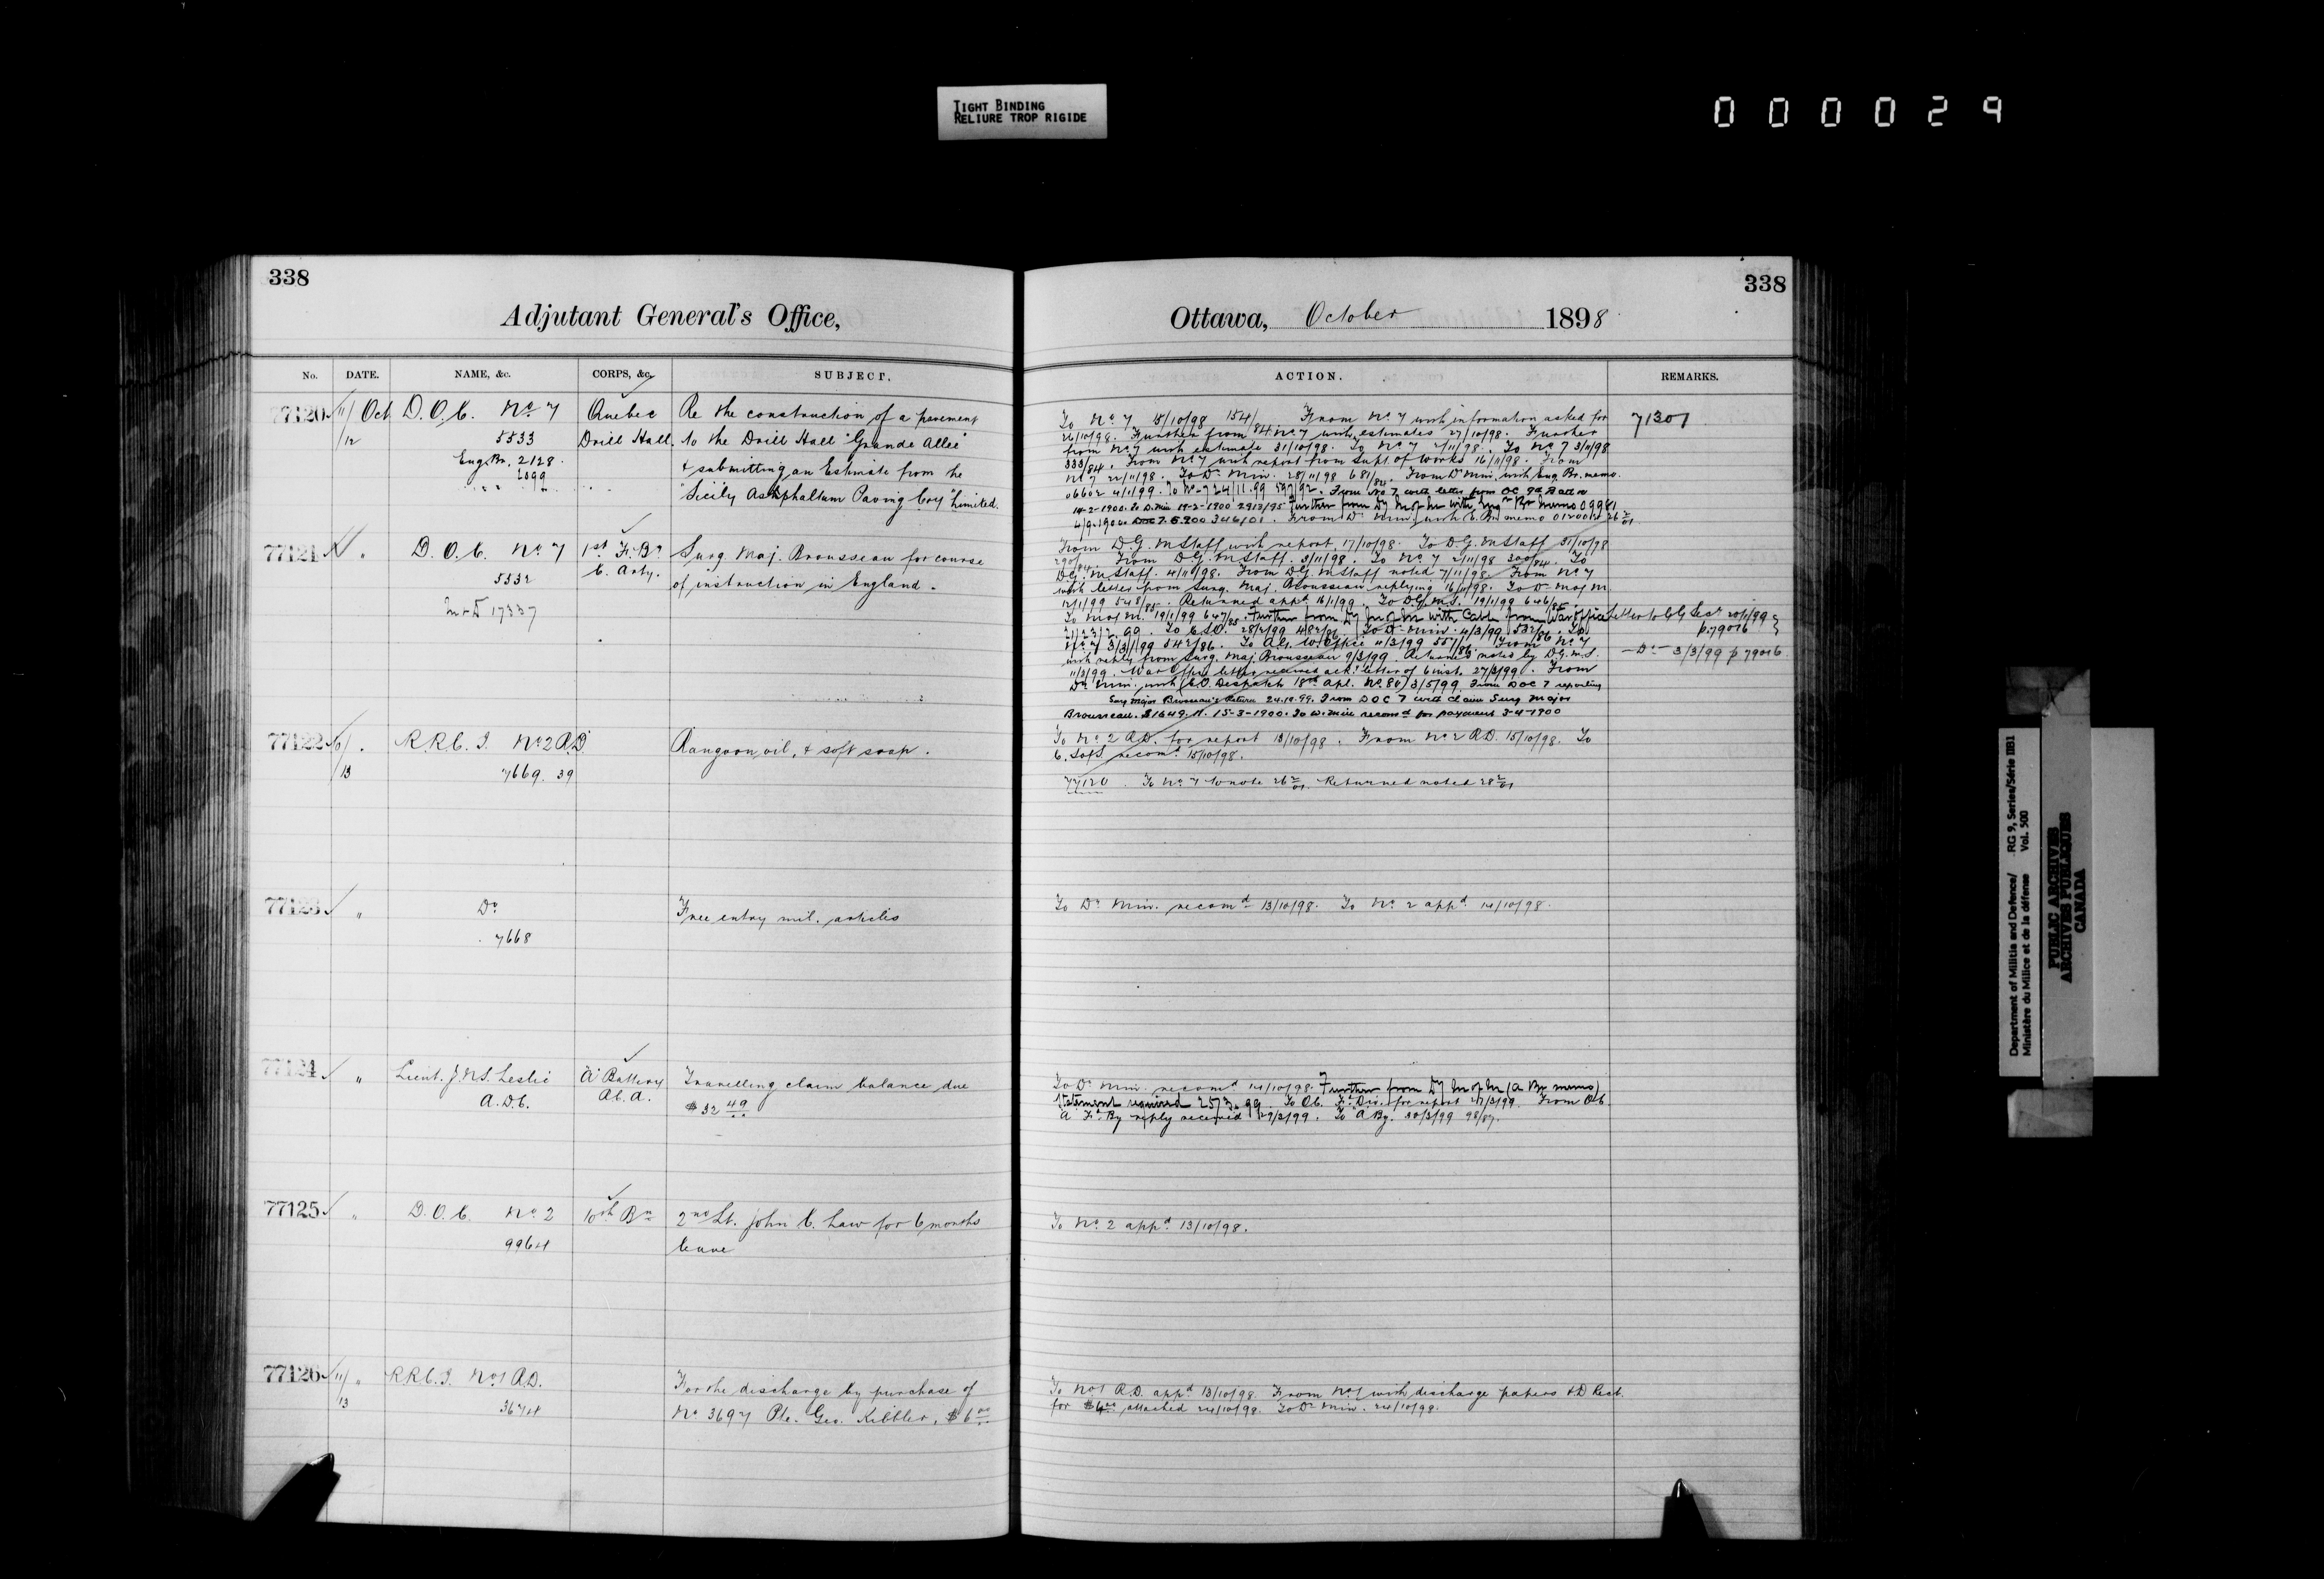 TIGHT BINDING
RELIURE TROP RIGIDE
000029
338
Adjutant General's Office,
No. DATE. NAME, &c. CORPS, &c. SUBJECT.
77120 11/12 Oct D.O.C. No 7 Quebec Re the construction of a pavement
5533 Drill Hall. to the Drill Hall "Grande Allee"
Eng. Br. 2128. & submitting an Estimate from the
2099 "Sicily Asphaltum Paving Coy" Limited.
77121 " D.O.C. No 7 1st F. Bn Surg. Maj. Brousseau for course
5532 C. Arty. of instruction in England.
M & D 17337
77122 10/13 . R.R.C.I. No 2 R.D. Rangoon oil, & soft soap.
7669. 39
77123 " Do Free entry mil. articles
7668
77124 " Lieut. J.N.S. Leslie "A" Battery Travelling claim balance due
A.D.C. $32 49
77125 " D.O.C. No 2 10th Bn 2nd Lt. John C. Law for 6 months
9964 leave
77126 11/13 " R.R.C.I. No 1 R.D. For the discharge by purchase of
3674 No 3697 Pte. Geo. Kibbler, $6 00
338
Ottawa, October 1898
ACTION. REMARKS.
To No 7 15/10/98 154/84 From No 7 with information asked for 71307
26/10/98. Further from No 7 with estimates 27/10/98. Further
from No 7 with estimate 31/10/98. To No 7 2/11/98. To No 7 3/11/98
333/84. From No 7 with report from Supt. of Works 16/11/98. From
No 7 22/11/98. To Dr Min 28/11/98 681/84. From Dr Min. with Eng. Br. memo.
06602 4/1/99. To No 7 24/11.99 597/92. From No 7 with letter from OC 9th Battn
14-2-1900. To D. Min 19-2-1900 2913/95 Further from Dy M of M with Eng Br Memo 09981
From D.G.M Staff with report, 17/10/98. To D.G.M Staff 31/10/98
290/84. From D.G.M Staff. 3/11/98. To No 7 2/11/98 300/84. To
D.G.M Staff. 4/11/98. From D.G.M Staff noted 7/11/98. From No 7
with letter from Surg. Maj. Brousseau replying 16/11/98. To Dr Maj M.
12/1/99 548/85. Returned appd 16/1/99. To D.G.M.S. 19/1/99 646/85.
To Maj M. 19/1/99 647/85. Further from Dy M of M with Cable from War Office
No 7 3/3/99 542/86. To Ag. W. Office 4/3/99 557/86. From No 7
with reply from Surg. Maj. Brousseau 9/3/99. Returned noted by D.G.M.S.
11/3/99. War Office letter received ack. letter of 6 inst. 27/3/99. From
Dr Min. with C.O. Despatch 18th Apl. No. 80) 3/5/99. From DOC 7 reporting
Surg Major Brousseau's Return 24.10.99. From DOC 7 with claim Surg Major
Brousseau. $1649.11. 15-3-1900. To D. Min recomd for payment 3-4-1900
p. 79016
-Do- 3/3/99 p 79016
To No 2 R.D. for report 13/10/98. From No 2 R.D. 15/10/98. To
C. Supt. recomd 15/10/98.
77120. To No 7 to note 26 2/01. Returned noted 28 2/01
To Dr Min. recomd 13/10/98. To No. 2 appd 14/10/98.
To Dr Min. recomd 14/10/98. Further from Dy M of M (A Br memo)
Statement required 25/3.99. To Ob. Fd Div. for report 27/3/99. From Ob
"A" Fd By reply received 29/3/99. To "A" By. 30/3/99 98/87.
To No. 2 appd 13/10/98.
To No 1 R.D. appd 13/10/98. From No 1 with discharge papers & D Rect.
for $6 00 attached 24/10/98. To Dr Min. 24/10/98.
Department of Militia and Defence/ RG 9, Series/Série IIB1
Ministère du Milice et de la défense Vol. 500
PUBLIC ARCHIVES
ARCHIVES PUBLIQUES
CANADA